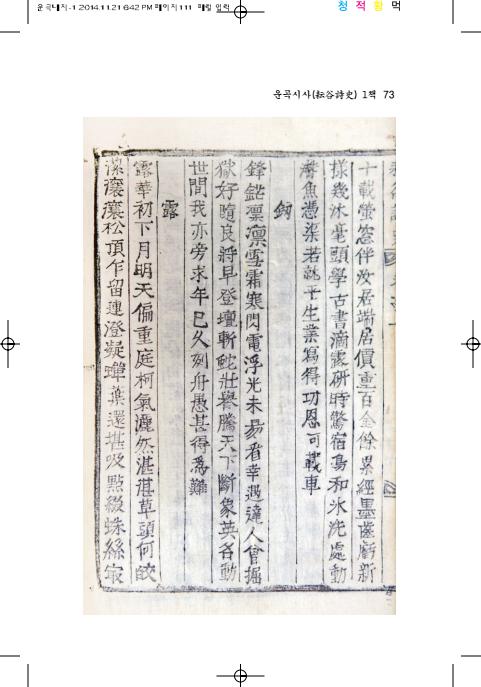 운곡내지-1 2014.11.21 6:42 PM 페이지 111 매킨 입력
청 적 황 먹
운곡시사(耘谷詩史) 1책 73
十載螢窓伴汝居端居價重百金餘累經墨齒磨新
樣幾沐毫頭學古書滴露硏時驚宿鳥和氷洗處動
潛魚憑渠若就平生業寫得功恩可載車
釰
鋒鋩凛凛雪霜寒閃電浮光未易看幸遇達人曾掘
獄好隨良將早登壇斬蛇壯譽騰天下斷象英名動
世間我亦旁求年已久刻舟愚甚得爲難
露
露華初下月明天偏重庭柯氣灑然湛湛草頭何皎
潔瀼瀼松頂乍留連澄凝蟬葉還堪吸點綴蛛絲㝡